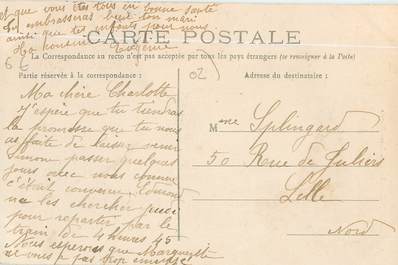 et que vous êtes tous en bonne santé
Tu embrasseras bien ton mari
ainsi que tes enfants pour nous
Ta cousine Eugénie
CARTE POSTALE
La Correspondance au recto n'est pas acceptée par tous les pays étrangers (se renseigner à la Poste)
Partie réservée à la correspondance :
Adresse du destinataire :
Ma chère Charlotte
J'espère que tu tiendras
la promesse que tu nous
as faite de laisser venir
Simone passer quelques
jours avec nous comme
c'était convenu Edmond
ira les chercher
pour repartir par le
train de 4 heures 45
Nous espérons que Marguerite
ne vous a pas trop
Mme Splingard
50 Rue de Juliers
Lille
Nord